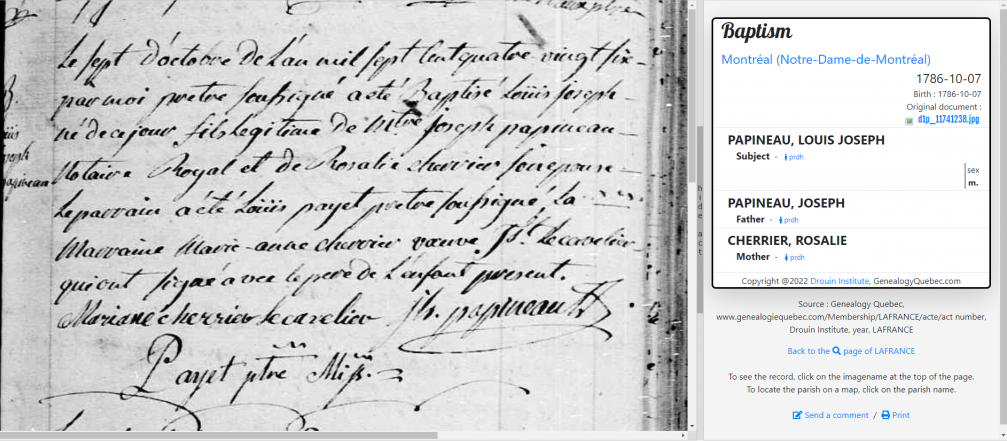 Le sept d'octobre de L'an mil sept Cent quatre vingt six
par moi pretre soussigné a eté Baptisé Loüis joseph
né de ce jour fils legitime de Mtre joseph papineau
Notaire Royal et de Rosalie cherrier son epouse
Le parrain a eté Loüis payet pretre soussigné La
Marraine Marie-anne cherrier vœuve Lecavelier
qui ont signé avec le pere de L'enfant present.
Mariane cherrier lecavelier jh. papineau
Payet ptre Miss.
joseph
papineau
Baptism
Montréal (Notre-Dame-de-Montréal)
1786-10-07
Birth : 1786-10-07
Original document :
d1p_11741238.jpg
PAPINEAU, LOUIS JOSEPH
Subject - prdh
sex
m.
PAPINEAU, JOSEPH
Father - prdh
CHERRIER, ROSALIE
Mother - prdh
Copyright @2022 Drouin Institute, GenealogyQuebec.com
hide act
Source : Genealogy Quebec,
www.genealogiequebec.com/Membership/LAFRANCE/acte/act number,
Drouin Institute, year, LAFRANCE
Back to the page of LAFRANCE
To see the record, click on the imagename at the top of the page.
To locate the parish on a map, click on the parish name.
Send a comment / Print